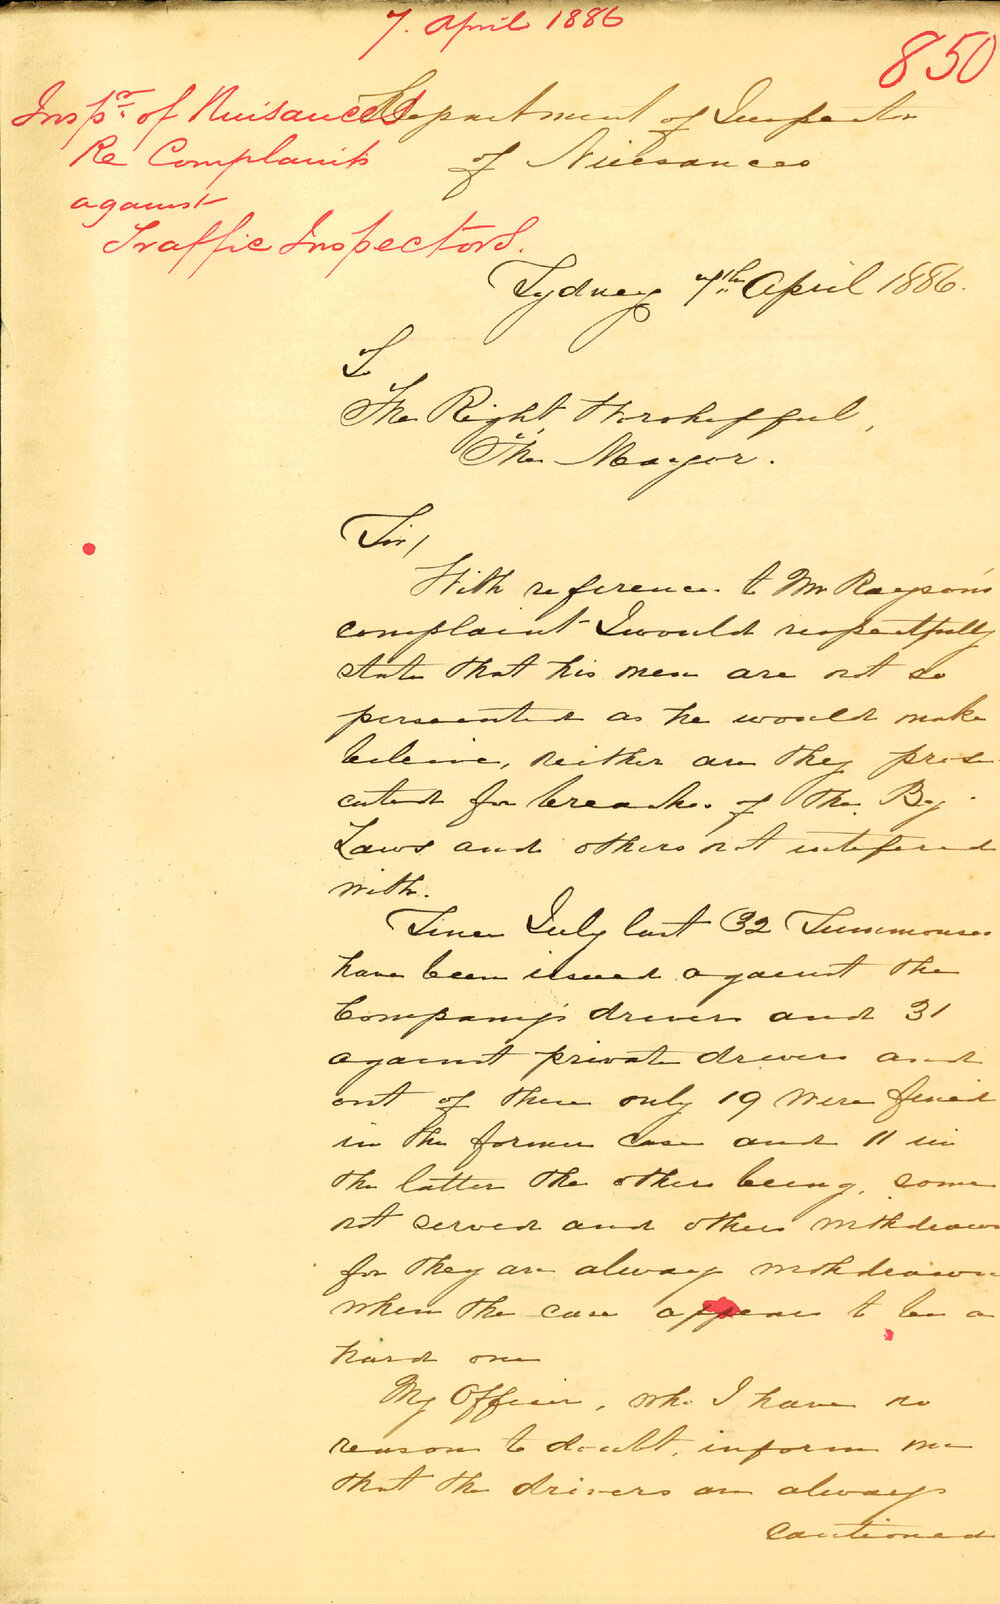 7. April 1886
850
Inspr. of Nuisances
Re Complaints
against
Traffic Inspectors.
Department of Inspector
of Nuisances
Sydney 7th April 1886.
To
The Right Worshipful,
The Mayor.
Sir,
With reference to Mr Rayson's
complaint I would respectfully
state that his men are not so
persecuted as he would make
beleive, neither are they prose
cuted for breaches of the By
Laws and others not intefered
with.
Since July last 32 Summonses
have been issued against the
Company's drivers and 31
against private drivers and
out of these only 19 were fined
in the former case and 11 in
the latter the others being, some
not served and others withdrawn
for they are always withdrawn
when the case appears to be a
hard one
My Officer, who I have no
reason to doubt, inform me
that the drivers are always
cautioned